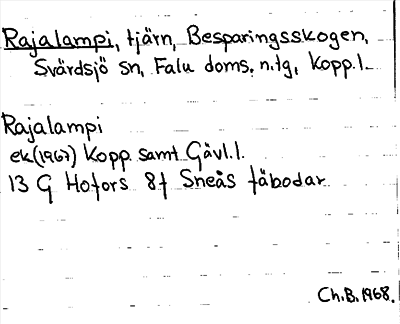 Rajalampi, tjärn, Besparingsskogen,
Svärdsjö sn, Falu doms. n.tg, Kopp.l.
Rajalampi
ek(1967) Kopp. samt Gävl.l.
13 G Hofors 8f Sneås fäbodar
Ch.B. 1968.